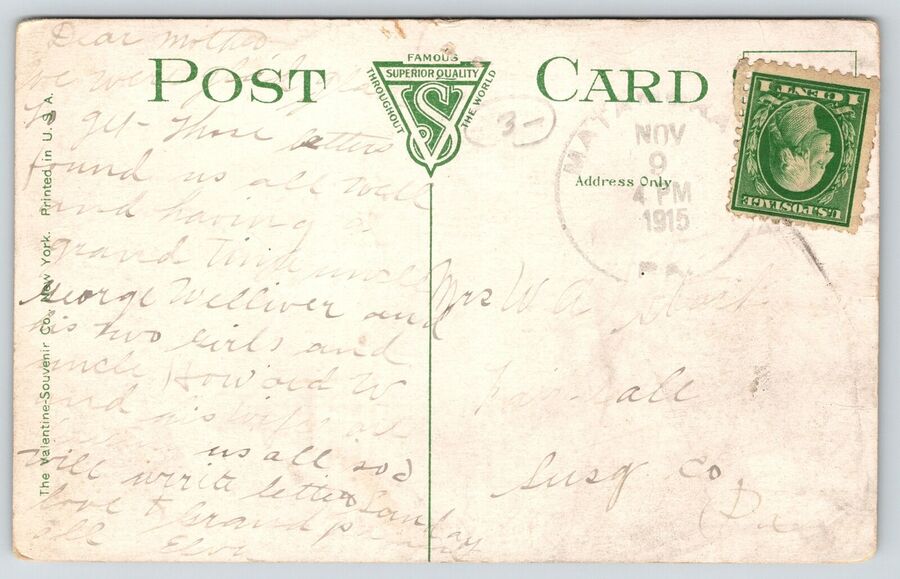 Dear mother
we were
to get those letters
found us all well
and having a
grand time uncle
George Welliver and
his two girls and
uncle Howard W
and his wife
us all soo
will write letter Sunday
love &
all
POST CARD
FAMOUS
SUPERIOR QUALITY
THROUGHOUT
THE WORLD
VS
3-
NOV
9
4 PM
1915
Address Only
1 CENT 1
U.S. POSTAGE
Mrs W A
Susq Co
Pa
The Valentine-Souvenir Co., New York. Printed in U. S. A.